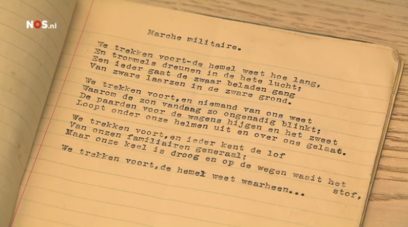 NOS.nl
Marche militaire.
We trekken voort-de hemel weet hoe lang,
En trommels dreunen in de hete lucht;
Een ieder gaat de zwaar beladen gang
Van zware laarzen in de zware grond.
We trekken voort,en niemand van ons weet
Waarom de zon vandaag zo ongenadig blinkt;
De paarden voor de wagens hijgen en het zweet
Loopt onder onze helmen uit en over ons gelaat.
We trekken voort,en ieder kent de lof
Van onzen familiairen generaal;
Maar onze keel is droog en op de wegen wasit het
stof,
We trekken voort,de hemel weet waarheen...